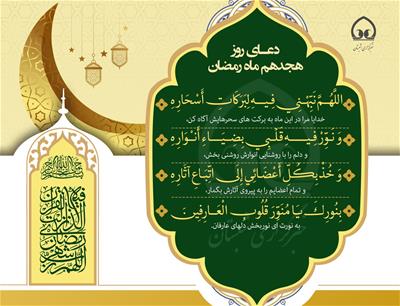 دعای روز
هجدهم ماه رمضان
اَللّهُمَّ نَبِّهْنِي فِيهِ لِبَرَكَاتِ أَسْحَارِهِ
خدایا مرا در این ماه به برکت های سحرهایش آگاه کن،
وَ نَوِّرْ فِيهِ قَلْبِي بِضِيَاءِ أَنْوَارِهِ
و دلم را با روشنایی انوارش روشنی بخش،
وَ خُذْ بِكُلِّ أَعْضَائِي إِلَى اتِّبَاعِ آثَارِهِ
و تمام اعضایم را به پیروی آثارش بگمار،
بِنُورِكَ يَا مُنَوِّرَ قُلُوبِ الْعَارِفِينَ
به نورت ای نوربخش دلهای عارفان.